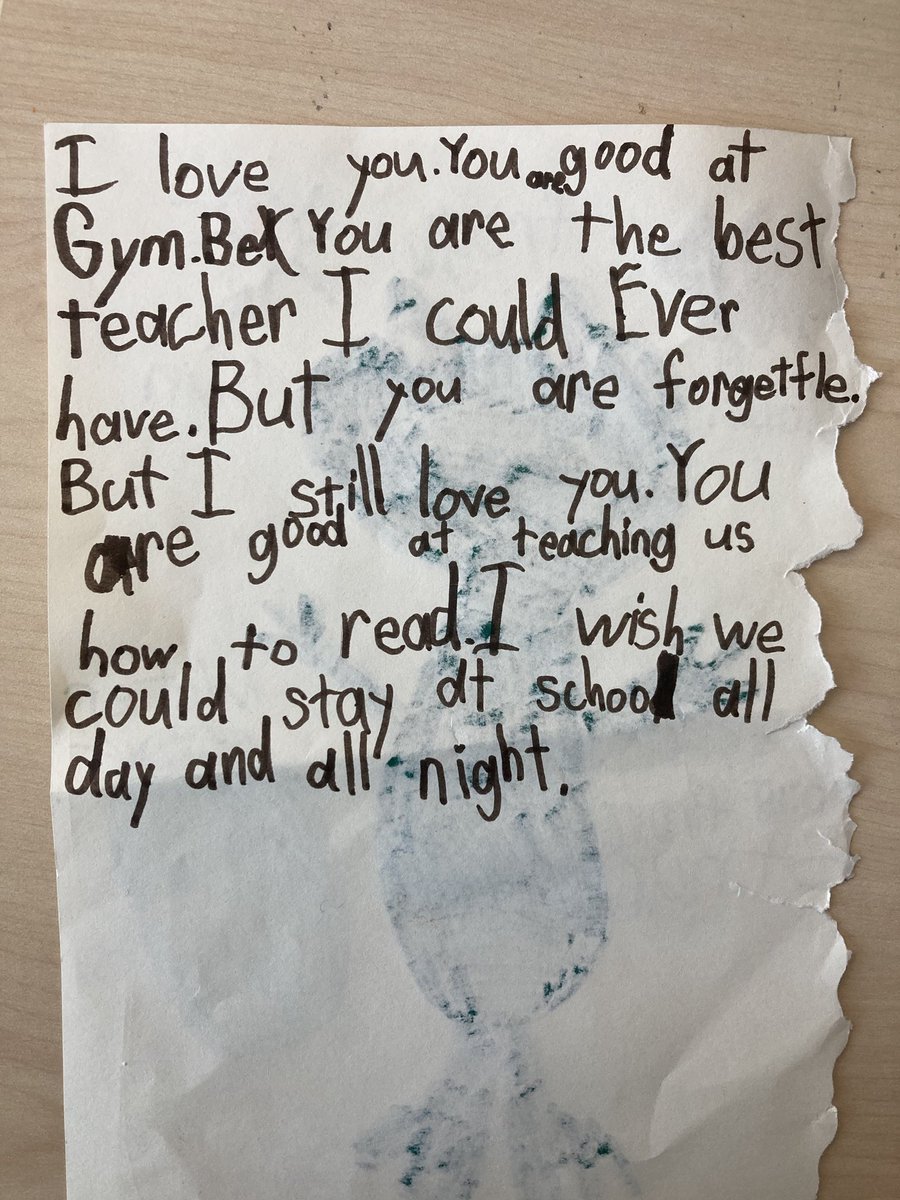 I love you. You are good at
Gym. Bex You are the best
teacher I could Ever
have. But you are forgetfle.
But I still love you. You
are good at teaching us
how to read. I wish we
could stay at school all
day and all night.